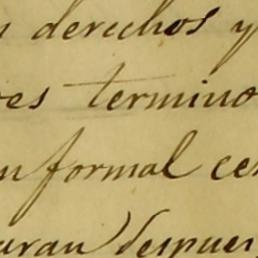 n derechos y
oes termino
n formal ce
uran despues